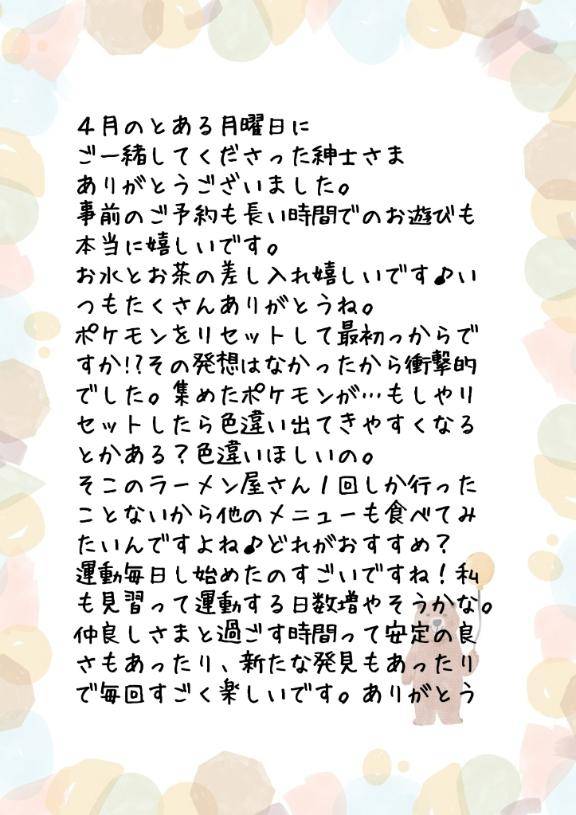 4月のとある月曜日に
ご一緒してくださった紳士さま
ありがとうございました。
事前のご予約も長い時間でのお遊びも
本当に嬉しいです。
お水とお茶の差し入れ嬉しいです♪い
つもたくさんありがとうね。
ポケモンをリセットして最初っからで
すか!?その発想はなかったから衝撃的
でした。集めたポケモンが…もしやリ
セットしたら色違い出てきやすくなる
とかある?色違いほしいの。
そこのラーメン屋さん1回しか行った
ことないから他のメニューも食べてみ
たいんですよね♪どれがおすすめ?
運動毎日し始めたのすごいですね!私
も見習って運動する日数増やそうかな。
仲良しさまと過ごす時間って安定の良
さもあったり、新たな発見もあったり
で毎回すごく楽しいです。ありがとう